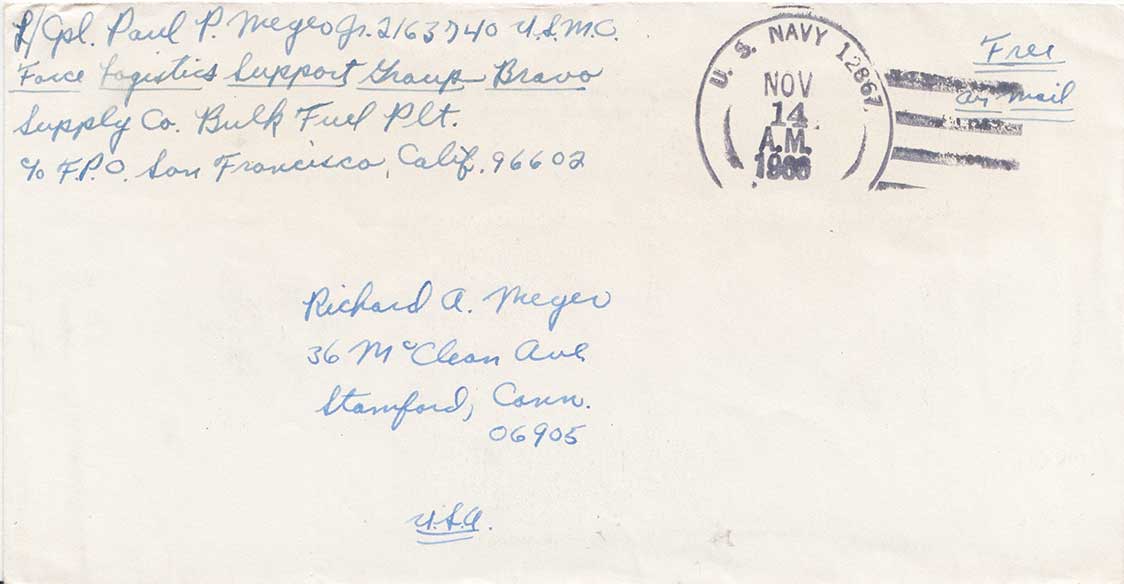 L/Cpl. Paul P. Megero Jr. 2163740 U.S.M.C.
Force Logistics Support Group Bravo
Supply Co. Bulk Fuel Plt.
c/o F.P.O. San Francisco, Calif. 96602
U. S. NAVY 12867
NOV
14
A.M.
1966
Free
air mail
Richard A. Megero
36 McClean Ave
Stamford, Conn.
06905
U.S.A.